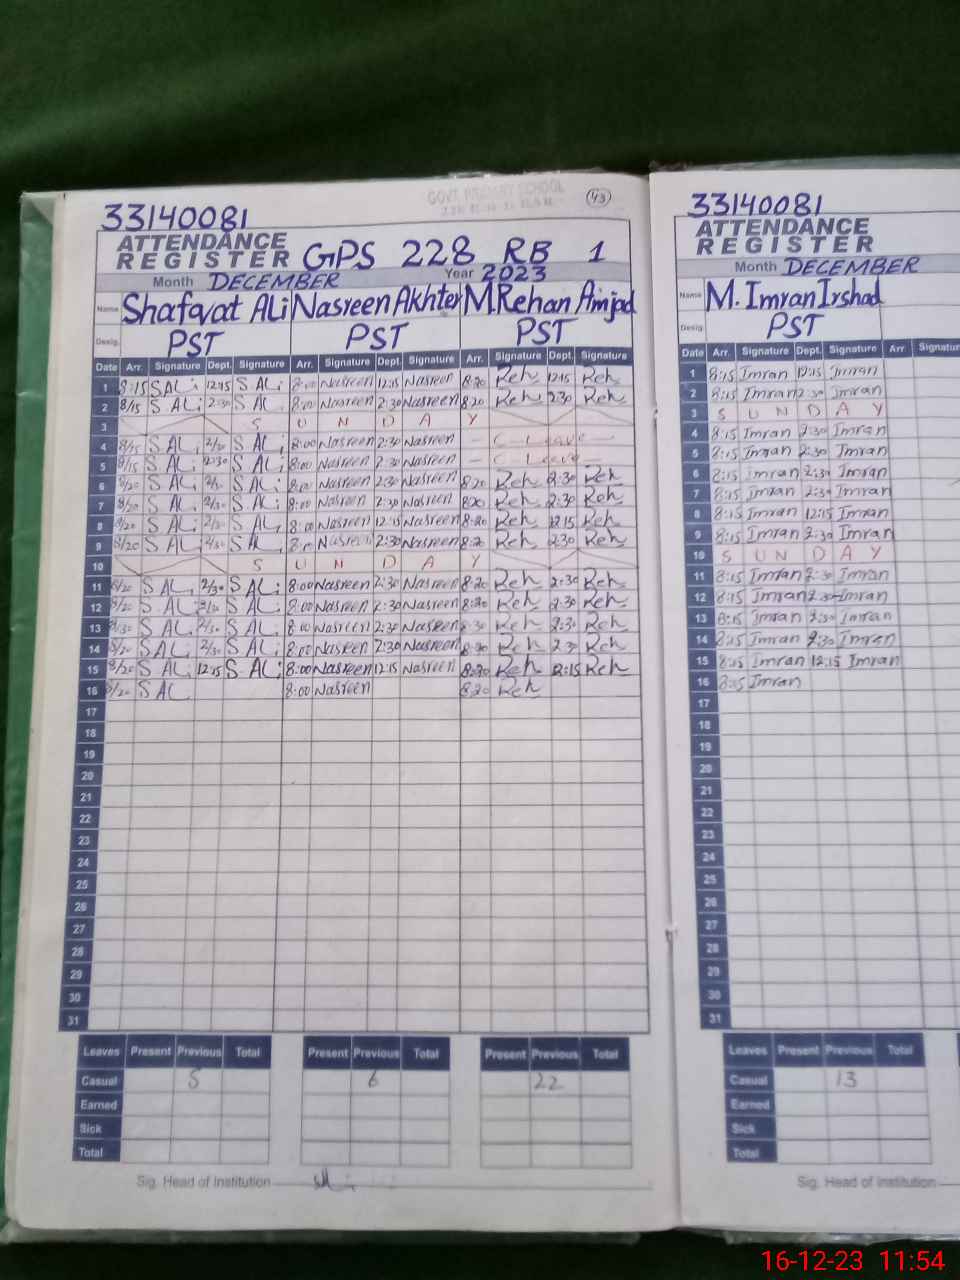 GOVT. PRIMARY SCHOOL
43
33140081
ATTENDANCE
REGISTER GPS 228 RB 1
Month DECEMBER Year 2023
Name Shafqat ALi Nasreen Akhter M.Rehan Amjad
Desig. PST PST PST
Date Arr. Signature Dept. Signature Arr. Signature Dept. Signature Arr. Signature Dept. Signature
1 8:15 S ALi 12:15 S ALi 8:00 Nasreen 12:15 Nasreen 8:20 Reh 12:15 Reh
2 8/15 S ALi 2:30 S AL 8:00 Nasreen 2:30 Nasreen 8:20 Reh 2:30 Reh
3 S U N D A Y
4 8/15 S AL 2/30 S ALi 8:00 Nasreen 2:30 Nasreen - C-Leave -
5 8/15 S ALi 2:30 S ALi 8:00 Nasreen 2:30 Nasreen - C-Leave -
6 8/20 S AL 2/30 S ALi 8:00 Nasreen 2:30 Nasreen 8:20 Reh 2:30 Reh
7 8/20 S ALi 2/30 S ALi 8:00 Nasreen 2:30 Nasreen 8:20 Reh 2:30 Reh
8 8/20 S AL S AL 8:00 Nasreen 12:15 Nasreen 8:20 Reh 12:15 Reh
9 8/20 S ALi 2/30 S ALi 8:00 Nasreen 2:30 Nasreen 8:20 Reh 2:30 Reh
10 S U N D A Y
11 8/20 S AL 2/30 S ALi 8:00 Nasreen 2:30 Nasreen 8:20 Reh 2:30 Reh
12 8/20 S ALi 2/30 S AL 8:00 Nasreen 2:30 Nasreen 8:20 Reh 2:30 Reh
13 S ALi 2/30 S ALi 8:00 Nasreen 2:30 Nasreen Reh 2:30 Reh
14 8/20 S ALi 2/30 S ALi 8:00 Nasreen 2:30 Nasreen 8:20 Reh 2:30 Reh
15 8/20 S ALi 12:15 S ALi 8:00 Nasreen 12:15 Nasreen 8:20 Reh 12:15 Reh
16 8/20 S AL 8:00 Nasreen 8:20 Reh
17
18
19
20
21
22
23
24
25
26
27
28
29
30
31
Leaves Present Previous Total Present Previous Total Present Previous Total
Casual 5 6 22
Earned
Sick
Total
Sig. Head of Institution
33140081
ATTENDANCE
REGISTER
Month DECEMBER
Name M. Imran Irshad
Desig. PST
Date Arr. Signature Dept. Signature Arr Signature
1 8:15 Imran 12:15 Imran
2 8:15 Imran 2:30 Imran
3 S U N D A Y
4 8:15 Imran 2:30 Imran
5 8:15 Imran 2:30 Imran
6 8:15 Imran 2:30 Imran
7 8:15 Imran 2:30 Imran
8 8:15 Imran 12:15 Imran
9 8:15 Imran 2:30 Imran
10 S U N D A Y
11 8:15 Imran 2:30 Imran
12 8:15 Imran 2:30 Imran
13 8:15 Imran 2:30 Imran
14 8:15 Imran 2:30 Imran
15 8:15 Imran 12:15 Imran
16 8:15 Imran
17
18
19
20
21
22
23
24
25
26
27
28
29
30
31
Leaves Present Previous Total
Casual 13
Earned
Sick
Total
Sig. Head of Institution
16-12-23 11:54